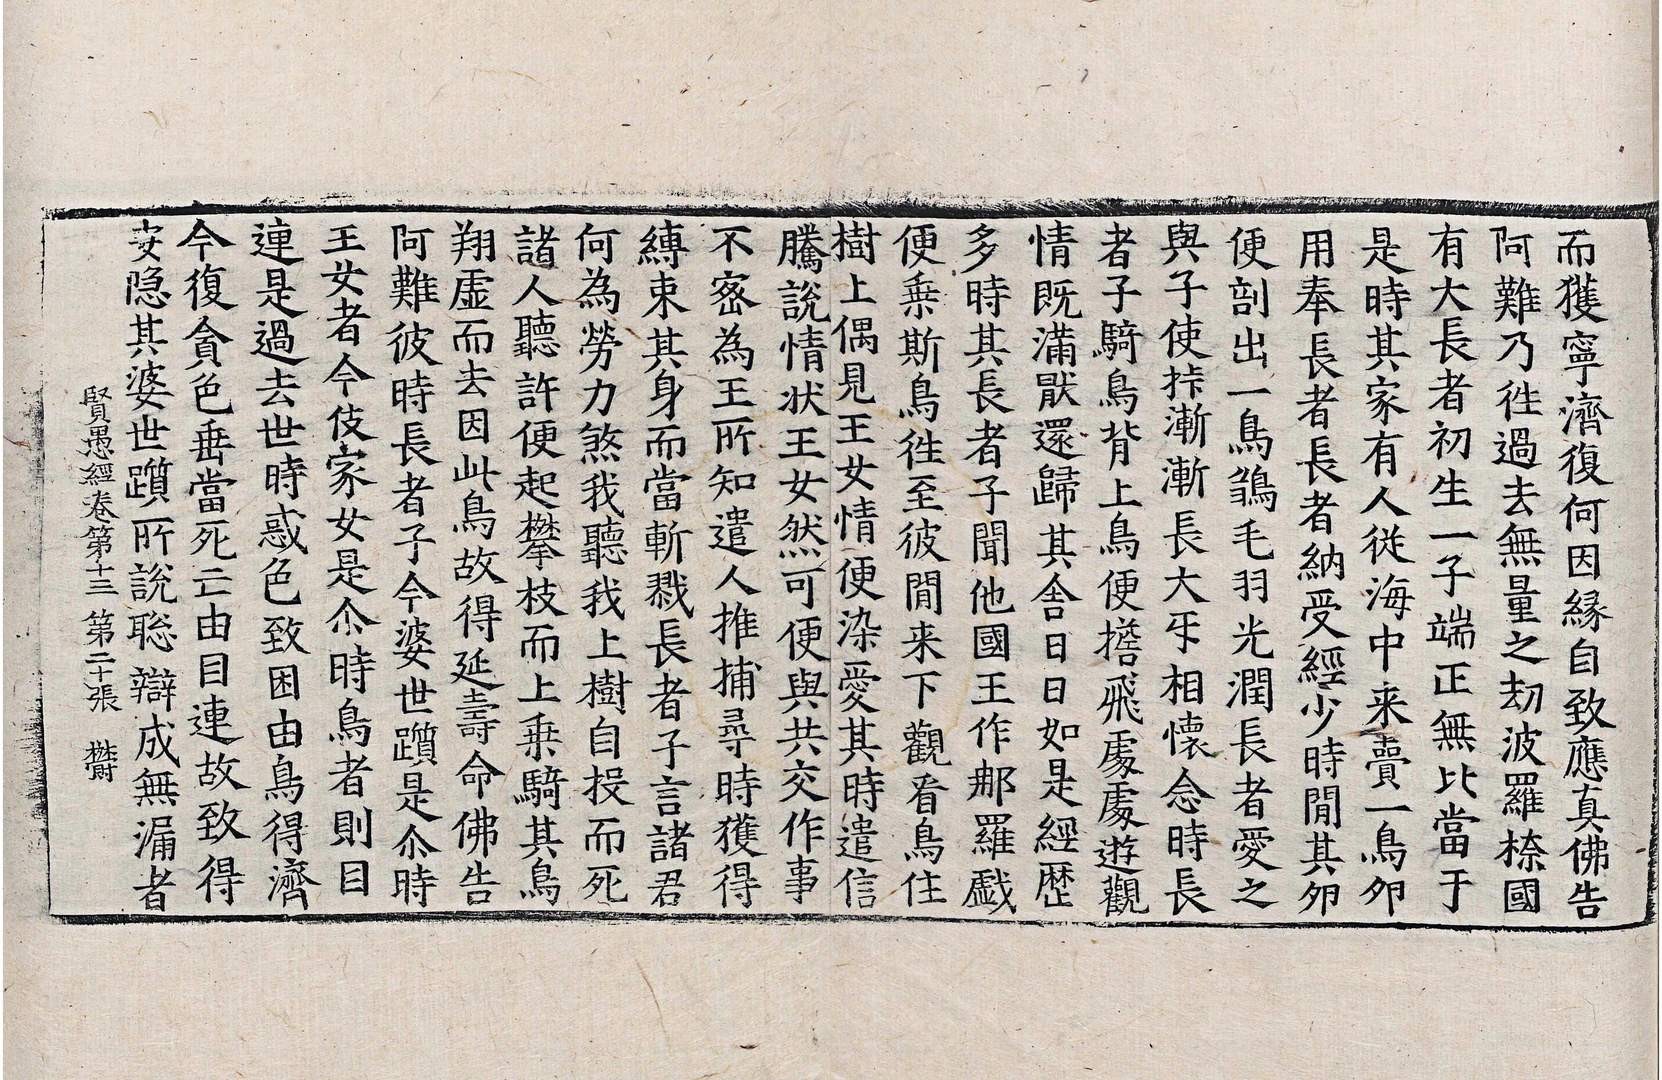 而獲寧濟復何因緣自致應真佛告
阿難乃徃過去無量之劫波羅㮈國
有大長者初生一子端正無比當于
是時其家有人從海中来賣一鳥卵
用奉長者長者納受經少時閒其卵
便剖出一鳥鶵毛羽光潤長者愛之
與子使㧊漸漸長大㸦相懷念時長
者子騎鳥背上鳥便擔飛處處遊觀
情既滿猒還歸其舍日日如是經歴
多時其長者子聞他國王作那羅戯
便乗斯鳥徃至彼閒来下觀看鳥住
樹上偶見王女情便染愛其時遣信
騰說情状王女然可便與共交作事
不宻為王所知遣人推捕尋時獲得
縛束其身而當斬戮長者子言諸君
何為勞力煞我聽我上樹自投而死
諸人聽許便起攀枝而上乗騎其鳥
翔虛而去因此鳥故得延壽命佛告
阿難彼時長者子今婆世躓是尒時
王女者今伎家女是尒時鳥者則目
連是過去世時惑色致困由鳥得濟
今復貪色垂當死亡由目連故致得
安隐其婆世躓所說聡辯成無漏者
賢愚經卷第十三 第二十張 欝